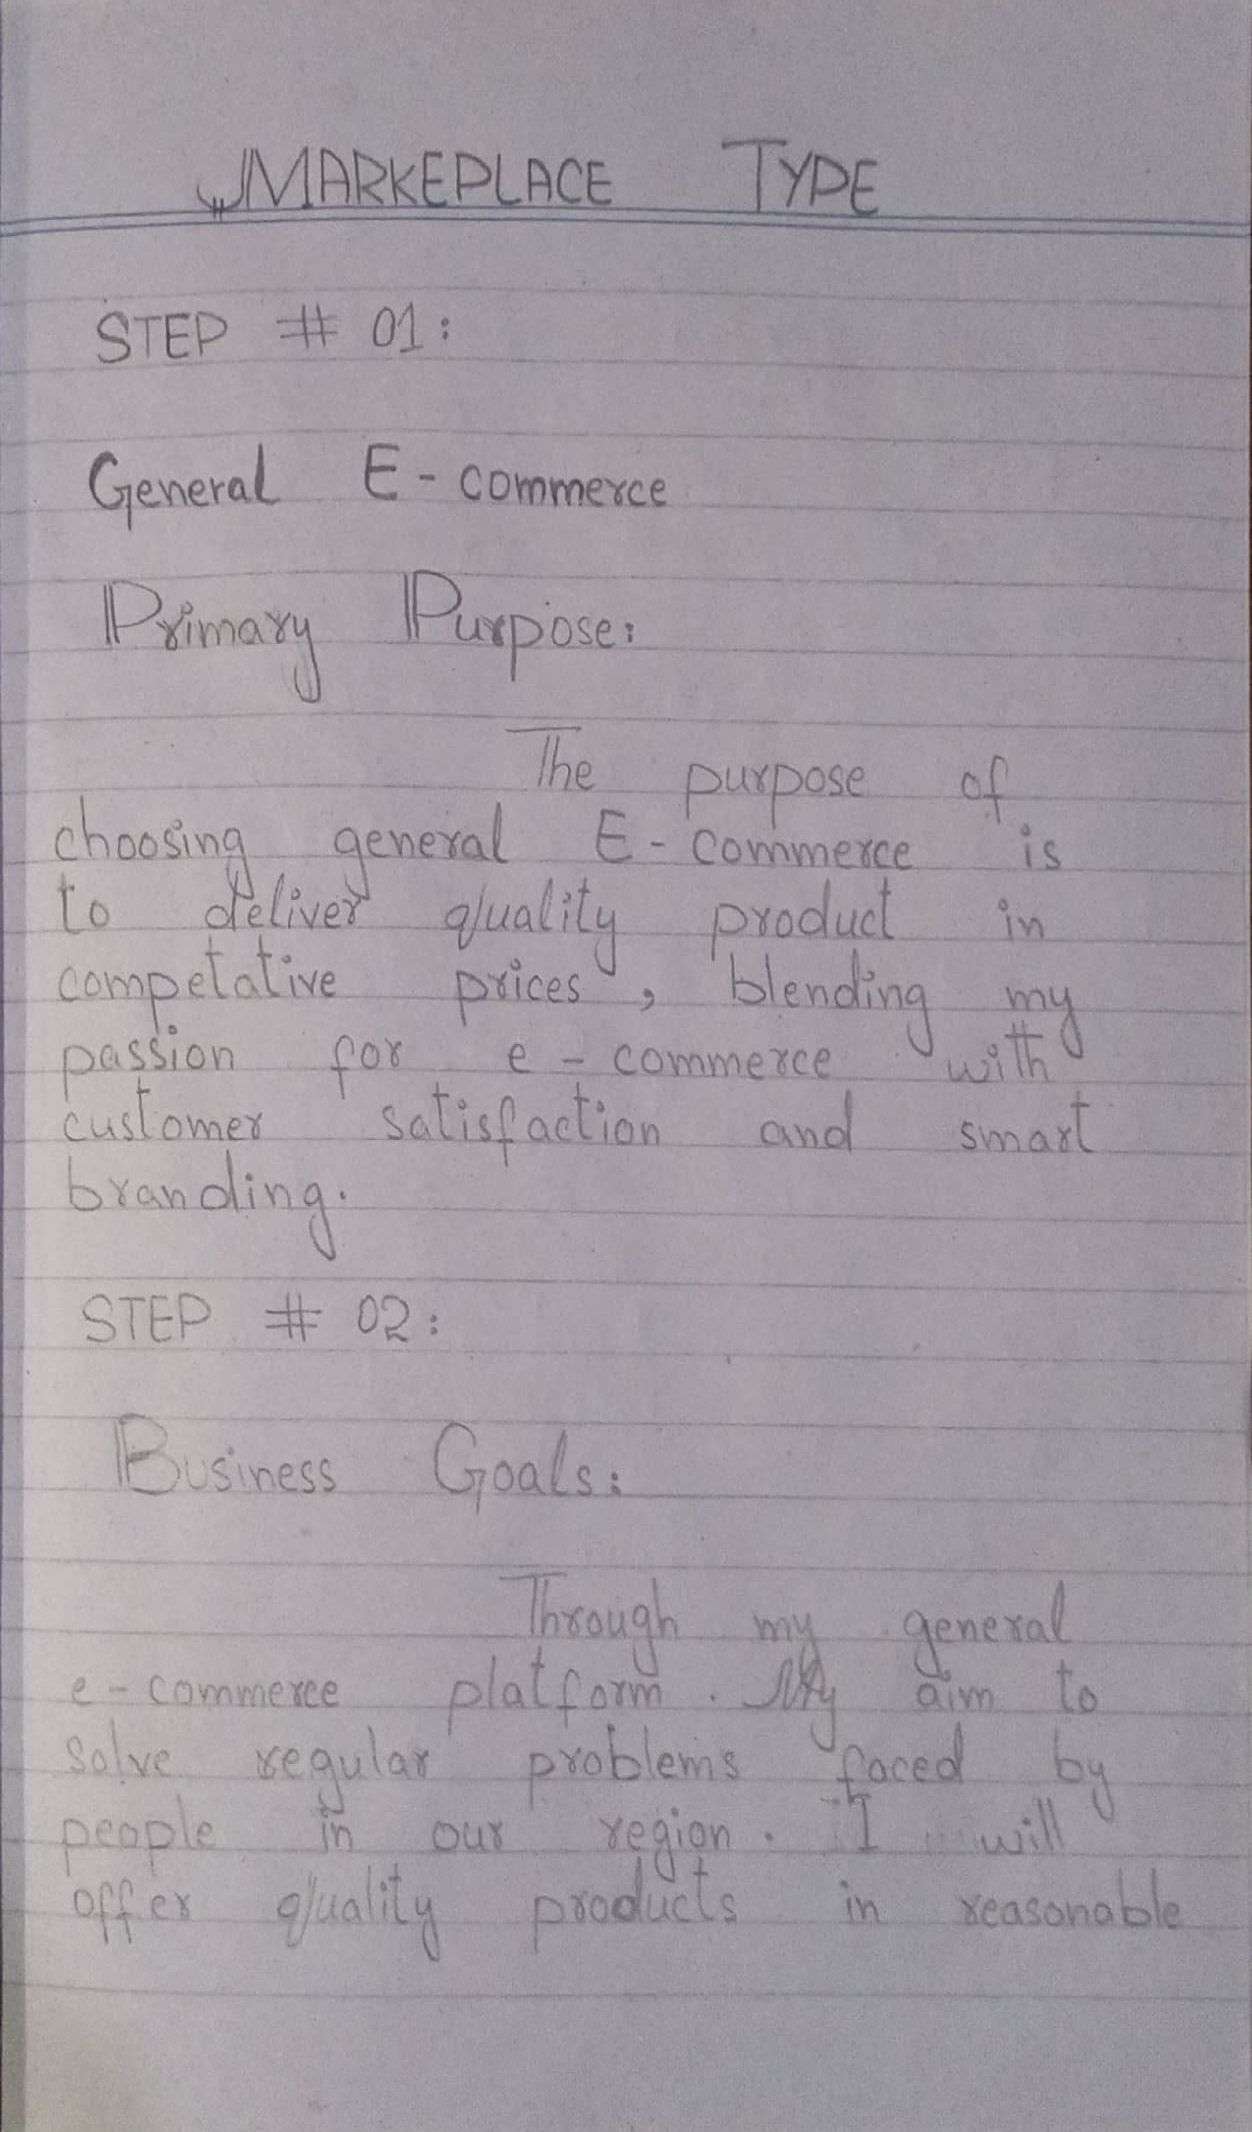 MARKEPLACE TYPE
STEP # 01:
General E-commerce
Primary Purpose:
The purpose of
choosing general E-commerce is
to deliver quality product in
competative prices, blending my
passion for e-commerce with
customer satisfaction and smart
branding.
STEP # 02:
Business Goals:
Through my general
e-commerce platform. My aim to
solve regular problems faced by
people in our region. I will
offer quality products in reasonable